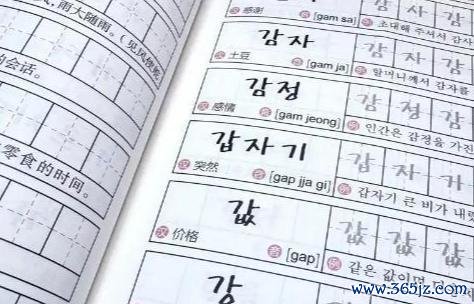 雨大随雨。(见风使舵
的会话。
零食的时间。
감 사
汉 感谢 音 [gam sa] 例 초대해 주셔서 감사
감자 감 자
汉 土豆 音 [gam ja] 例 할머니께서 감자를
감정 감 정 감
汉 感情 音 [gam jeong] 例 인간은 감정을 가진
갑자기 갑 자 기
汉 突然 音 [gap jja gi] 例 갑자기 큰 비가
값 값 값 값
汉 价格 音 [gap] 例 같은 값이면
강
www.365jz.com